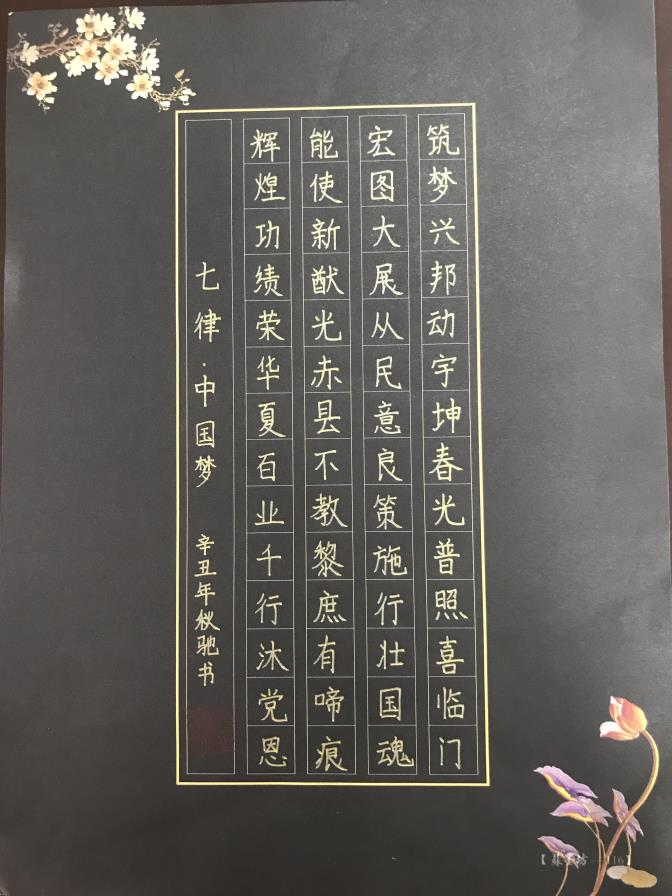 筑梦兴邦动宇坤春光普照喜临门
宏图大展从民意良策施行壮国魂
能使新猷光赤县不教黎庶有啼痕
辉煌功绩荣华夏百业千行沐党恩
七律·中国梦 辛丑年秋驰书